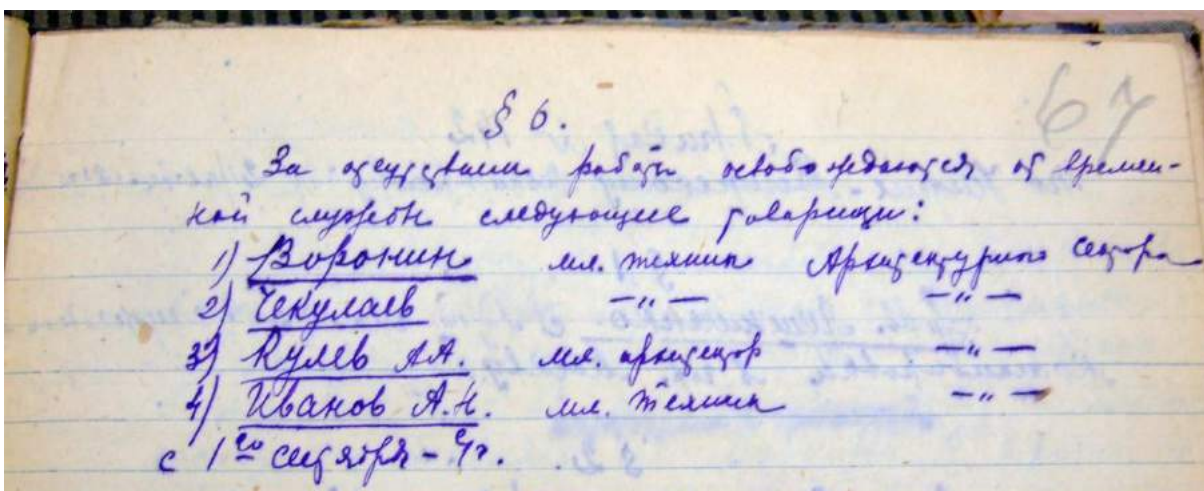 67
§ 6.
За отсутствием работы освобождаются от времен-
ной службы следующие товарищи:
1) Воронин мл. техник Архитектурного сектора
2) Чекулаев —"— —"—
3) Кулёв А.А. мл. архитектор —"—
4) Иванов А.Н. мл. техник —"—
с 1го сентября - с/г.